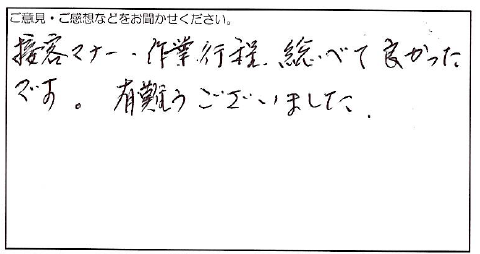 ご意見・ご感想などをお聞かせください。
接客マナー・作業行程、総べて良かった
です。有難うございました.